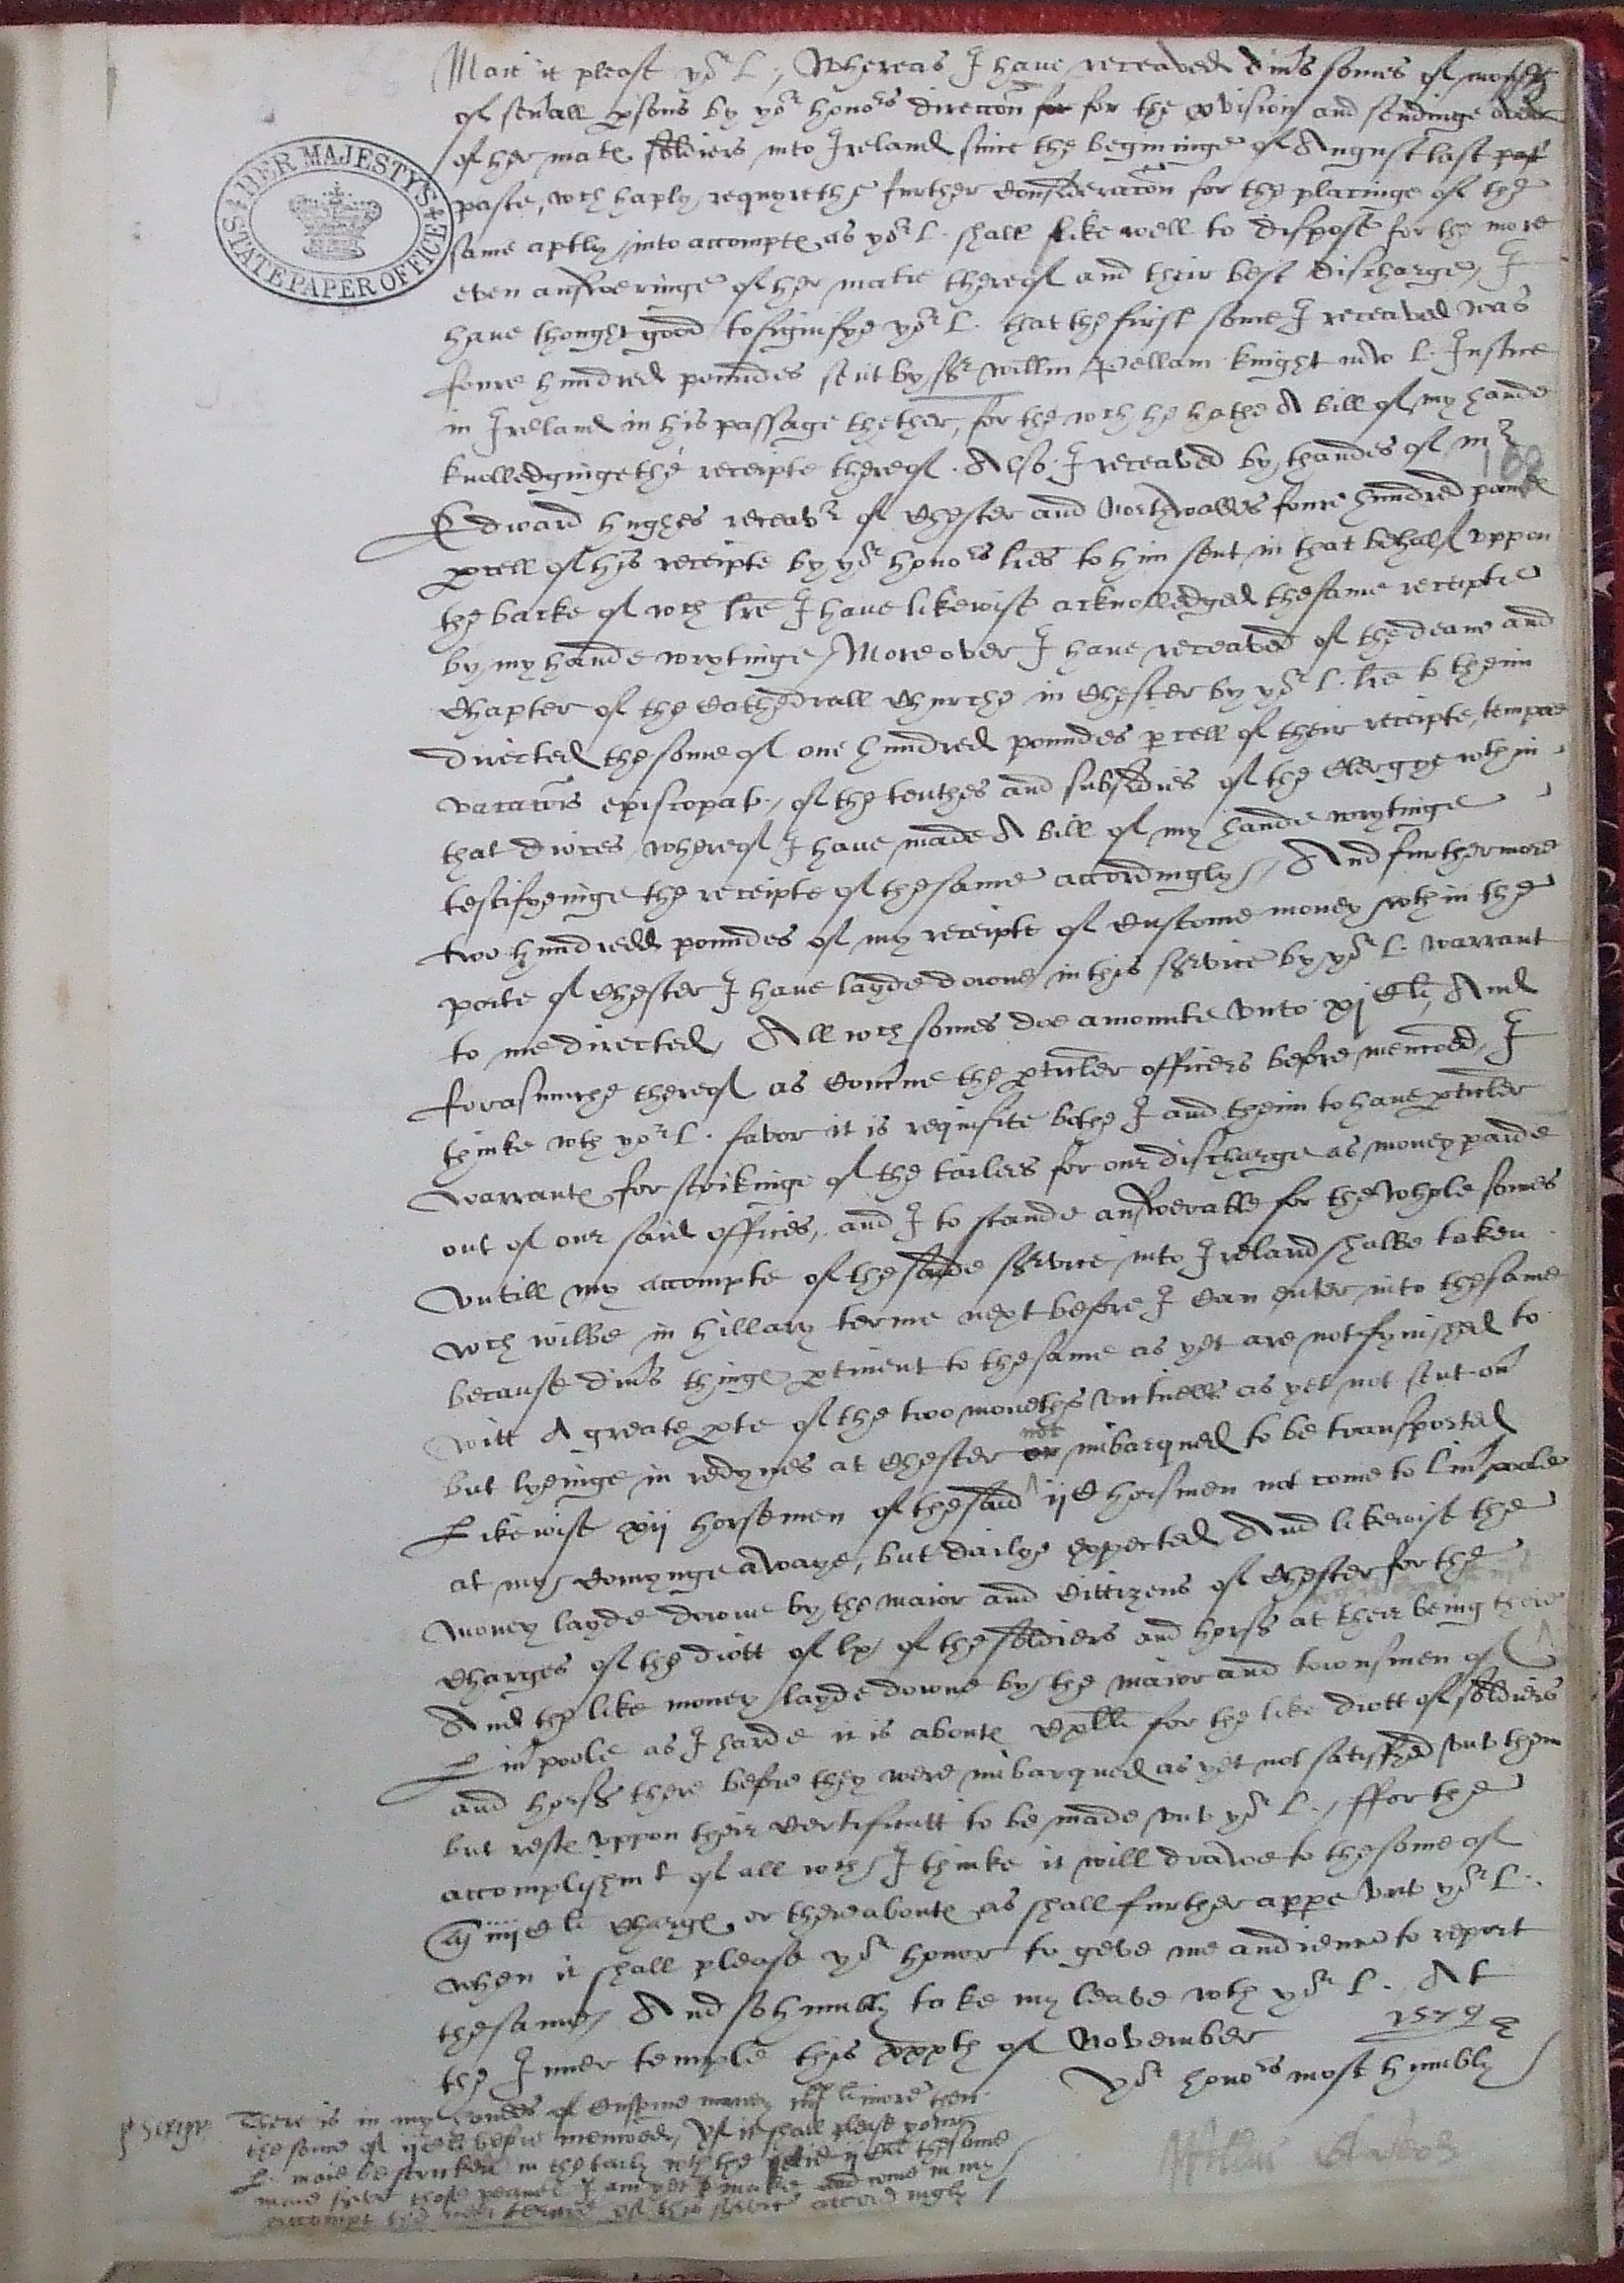 Maie it please yor L, Whereas I have receaved divrs somes of money
of severall psons by yor honors direccon for the pvision and sendinge over
of her mats soldiers into Ireland since the beginninge of August last past
HER MAJESTY'S STATE PAPER OFFICE
paste, wch haply requyrethe further consideracon for the placinge of the
same aptly into accompte as yor L. shall like well to dispose for the more
even answeringe of her matie thereof and their best discharge, I
have thought good to signifye yor L. that the first some I receaved was
foure hundred poundes sent by Sr Willm Pellam knight now L. Justice
in Ireland in his passage thether, for the wch he hathe A bill of my hande
knolledginge the receipte thereof. Also I receaved by thandes of mr
168
Edward hughes receavr of Chester and Northwalles foure hundred pounde
pcell of his receipte by yor honors lres to him sent in that behalf uppon
the backe of wch lre I have likewise acknolledged the same receipte
by my hande wrytinge, Moreover I have receaved of the deane and
Chapter of the Cathedrall Churche in Chester by yor L. lre to theim
directed the some of one hundred poundes pcell of their receipte, tempore
vacacois episcopat, of the tenthes and subsidies of the Clergye wthin
that dioces whereof I have made A bill of my hande wrytinge
testifyeinge the receipte of the same accordingly, And furthermore
two hundredd poundes of my receipte of Custome money wthin the
porte of Chester I have layde downe in this service by yor L. warrant
to me directed, All wch somes doe amounte unto xj C li, And
forasmuche thereof as Concerne the pticuler officers before menconed, I
thinke wth yor L. favor it is requisite bothe I and theim to have pticuler
warrante for strikinge of the tailers for our discharge as money paide
out of our said offices, and I to stande answerable for the whole somes
untill my accompte of the saide service into Ireland shalbe taken
wch wilbe in hillary terme next before I can enter into the same
because divrs thinge ptinent to the same as yet are not fynished to
witt A greate pte of the two monethes victuells as yet not sent over
but lyeinge in redynes at Chester not imbarqued to be transported
Likewise xij horsemen of the said ij C horsmen not come to Livrpoole
at my comynge awaye, but dailye expected And likewise the
money layde downe by the maior and Cittizens of Chester for the
charges of the diott of lx of the soldiers and horss at their being there
And the like money layde downe by the maior and townsmen of
Livrpoole as I harde it is aboute Cxl li for the like diott of soldiers
and horss there before they were imbarqued as yet not satisfied unto them
but reste uppon their Certificatt to be made unto yor L, ffor the
accomplishmt of all wch I thinke it will drawe to the some of
iiij C li charge, or thereaboute as shall further appe unto yor L.
when it shall please yor honor to geve me audience to report
the same, And so humbly take my leave wth yor L. At
the Inner temple this xxxth of November 1579
Yor honors most humbly
There is in my handes of Custome money more then
the some of ij C li before menconed, yf it shall please your
L. maie be stricken in the taile wth the
accompt the next terme of this service accordingly